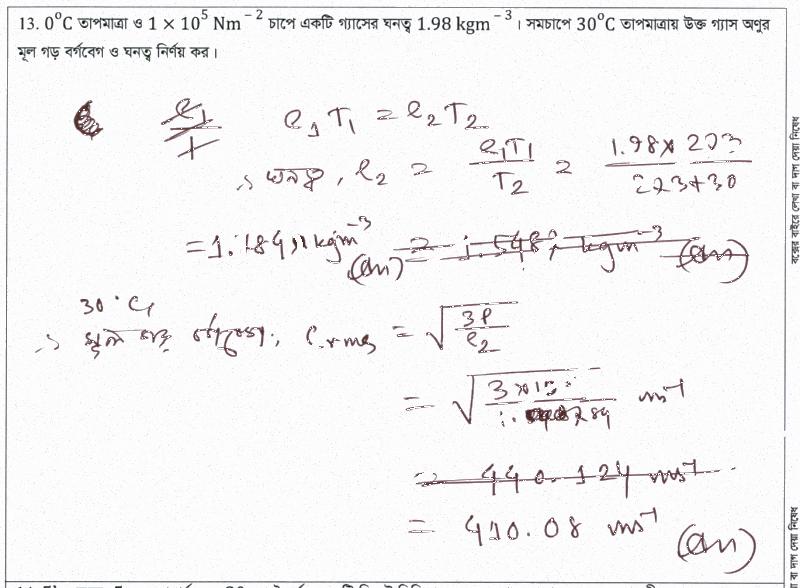 13. 0°C তাপমাত্রা ও 1 × 10⁵ Nm⁻² চাপে একটি গ্যাসের ঘনত্ব 1.98 kgm⁻³ । সমচাপে 30°C তাপমাত্রায় উক্ত গ্যাস অণুর
মূল গড় বর্গবেগ ও ঘনত্ব নির্ণয় কর।
ρ₁T₁ = ρ₂T₂
∴ ঘনত্ব, ρ₂ = ρ₁T₁/T₂ = 1.98 × 273/273+30
= 1.784 kgm⁻³ (Ans)
30°C
∴ মূল গড় বর্গবেগ, Crms = √(3P/ρ₂)
= √(3×10⁵/1.784) ms⁻¹
= 440.124 ms⁻¹
= 410.08 ms⁻¹ (Ans)
বক্সের বাইরে লেখা বা দাগ দেয়া নিষেধ
যা বা দাগ দেয়া নিষেধ